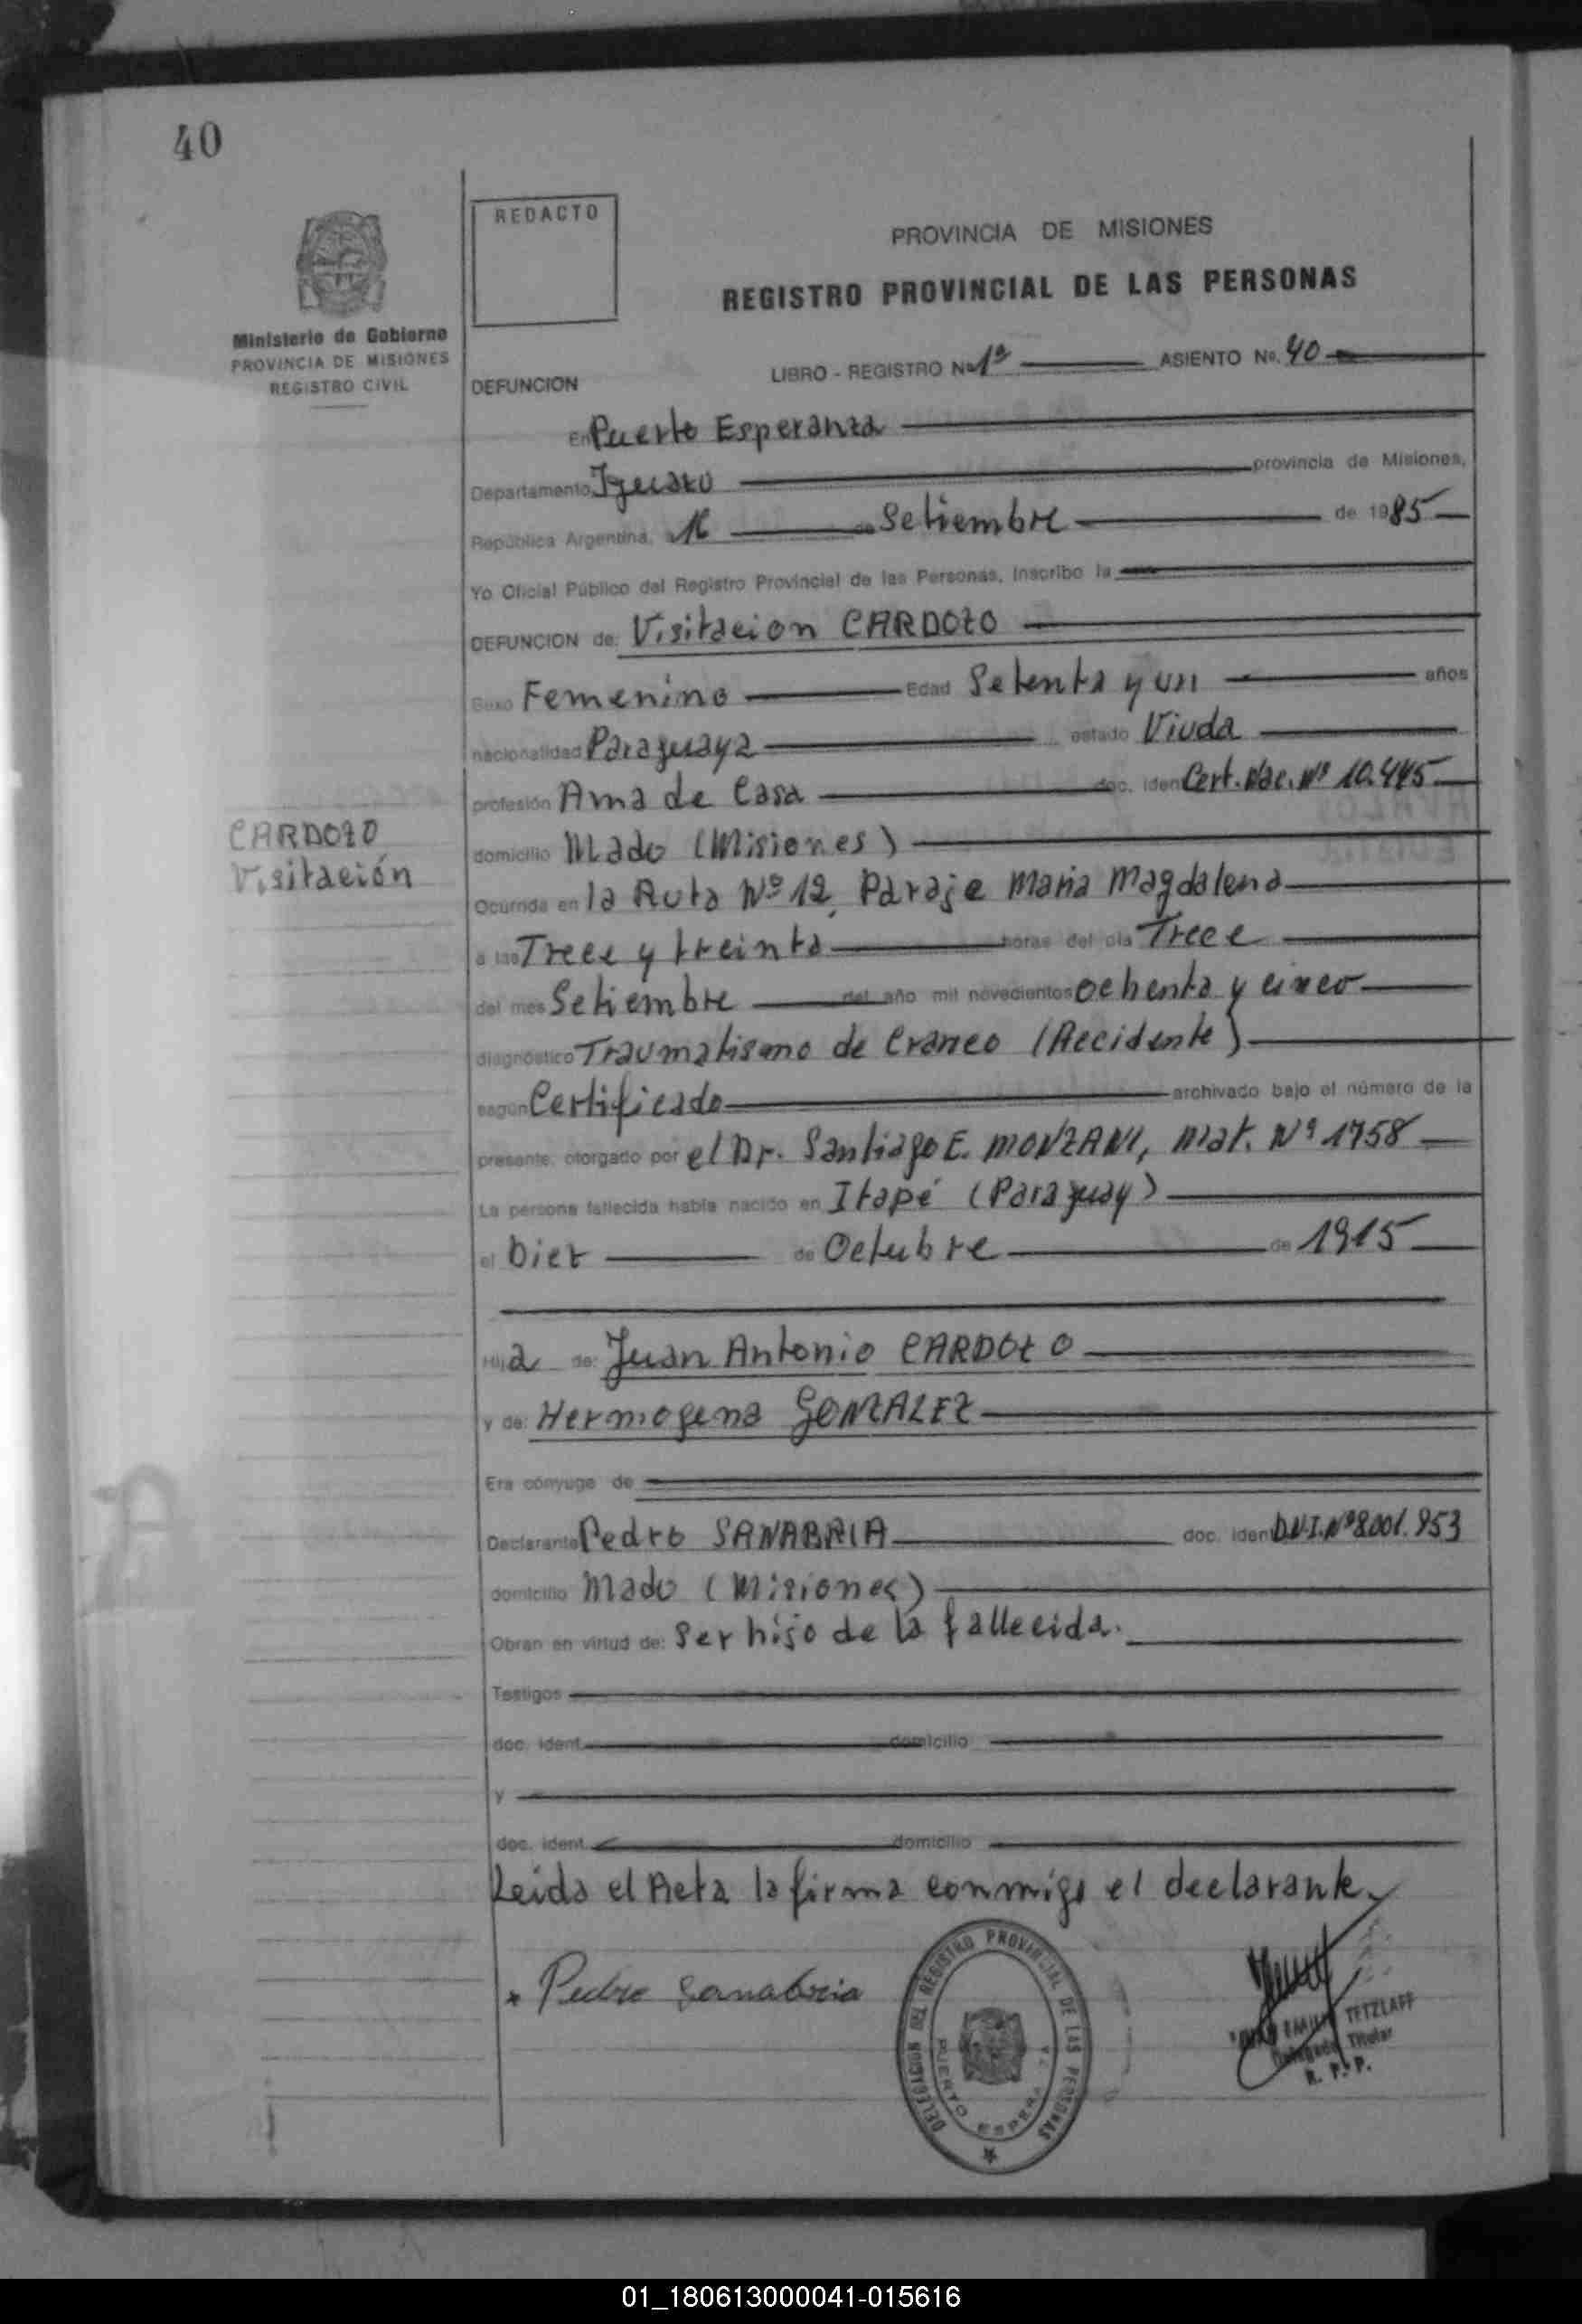 40
REDACTO
PROVINCIA DE MISIONES
REGISTRO PROVINCIAL DE LAS PERSONAS
Ministerio de Gobierno
PROVINCIA DE MISIONES
REGISTRO CIVIL
LIBRO - REGISTRO Nº 1º ASIENTO Nº. 40
DEFUNCION
En Puerto Esperanza
Departamento Iguazú provincia de Misiones,
República Argentina, a 16 de Setiembre de 1985
Yo Oficial Público del Registro Provincial de las Personas, inscribo la
DEFUNCION de: Visitacion CARDOZO
Sexo Femenino Edad Setenta y un años
nacionalidad Paraguaya estado Viuda
profesión Ama de Casa doc. iden Cert. Nac. Nº 10.445
CARDOZO
Visitación
domicilio Mado (Misiones)
Ocurrida en la Ruta Nº 12, Paraje Maria Magdalena
a las Trece y treinta horas del día Trece
del mes Setiembre del año mil novecientos ochenta y cinco
diagnóstico Traumatismo de Craneo (Accidente)
según Certificado archivado bajo el número de la
presente, otorgado por el Dr. Santiago E. MONZANI, Mat. Nº 1758
La persona fallecida había nacido en Itapé (Paraguay)
el Diez de Octubre de 1915
Hija de: Juan Antonio CARDOZO
y de: Hermogena GONZALEZ
Era cónyuge de
Declarante Pedro SANABRIA doc. iden D.N.I. Nº 8.001.953
domicilio Mado (Misiones)
Obran en virtud de: Ser hijo de la fallecida.
Testigos
doc. ident. domicilio
y
doc. ident. domicilio
Leida el Acta la firma conmigo el declarante
* Pedro Sanabria
DELEGACION DEL REGISTRO PROVINCIAL DE LAS PERSONAS
PUERTO ESPERANZA
EMILIO TETZLAFF
Delegado Titular
R. P. P.
01_180613000041-015616